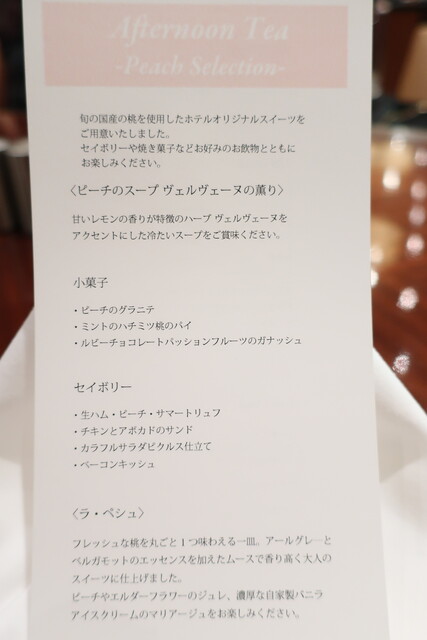 Afternoon Tea
-Peach Selection-
旬の国産の桃を使用したホテルオリジナルスイーツを
ご用意いたしました。
セイボリーや焼き菓子などお好みのお飲物とともに
お楽しみください。
〈ピーチのスープ ヴェルヴェーヌの薫り〉
甘いレモンの香りが特徴のハーブ ヴェルヴェーヌを
アクセントにした冷たいスープをご賞味ください。
小菓子
・ピーチのグラニテ
・ミントのハチミツ桃のパイ
・ルビーチョコレートパッションフルーツのガナッシュ
セイボリー
・生ハム・ピーチ・サマートリュフ
・チキンとアボカドのサンド
・カラフルサラダピクルス仕立て
・ベーコンキッシュ
〈ラ・ペシュ〉
フレッシュな桃を丸ごと1つ味わえる一皿。アールグレーと
ベルガモットのエッセンスを加えたムースで香り高く大人の
スイーツに仕上げました。
ピーチやエルダーフラワーのジュレ、濃厚な自家製バニラ
アイスクリームのマリアージュをお楽しみください。